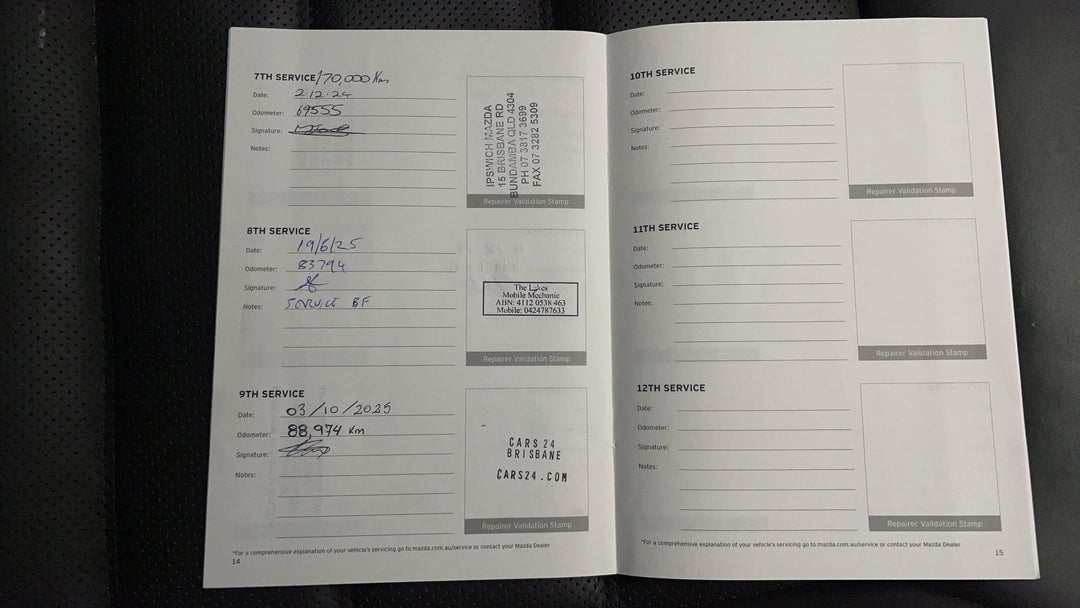 7TH SERVICE/70,000 Km
Date: 2.12.24
Odometer: 69555
Signature:
Notes:
IPSWICH MAZDA
15 BRISBANE RD
BUNDAMBA QLD 4304
PH 07 3817 3699
FAX 07 3282 5309
Repairer Validation Stamp
8TH SERVICE
Date: 19/6/25
Odometer: 83794
Signature:
Notes: SERVICE BF
The Lakes
Mobile Mechanic
ABN: 4112 0538 463
Mobile: 0424787633
Repairer Validation Stamp
9TH SERVICE
Date: 03/10/2025
Odometer: 88,974 Km
Signature:
Notes:
CARS 24
BRISBANE
CARS24.COM
Repairer Validation Stamp
*For a comprehensive explanation of your vehicle's servicing go to mazda.com.au/service or contact your Mazda Dealer
14
10TH SERVICE
Date:
Odometer:
Signature:
Notes:
Repairer Validation Stamp
11TH SERVICE
Date:
Odometer:
Signature:
Notes:
Repairer Validation Stamp
12TH SERVICE
Date:
Odometer:
Signature:
Notes:
Repairer Validation Stamp
*For a comprehensive explanation of your vehicle's servicing go to mazda.com.au/service or contact your Mazda Dealer
15